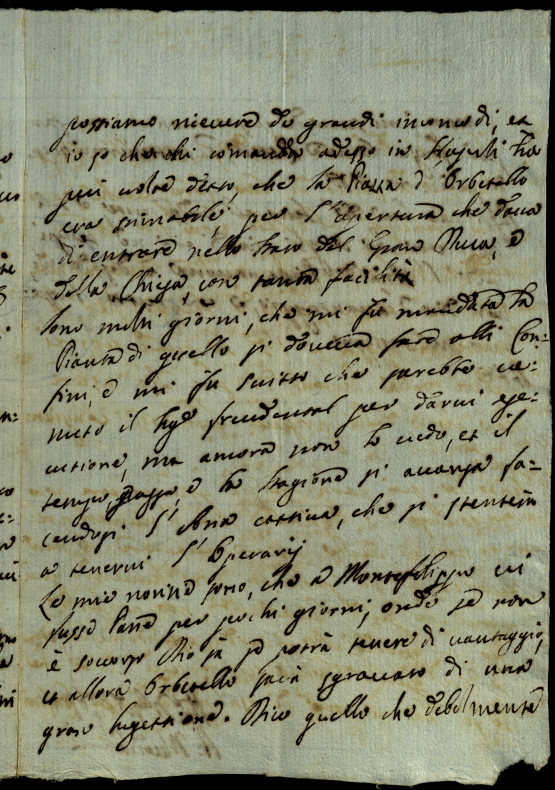 possiamo ricevere de grandi incomodi, et
io so che chi comanda adesso in Napoli ha
più volte detto, che la Piazza d'Orbetello
era stimabile, per l'apertura che dava
di entrare nello stato del Gran Duca, e
della Chiesa, con tanta facilità
Sono molti giorni, che mi fu mandata la
Pianta di quello si doveva fare alli Con=
fini, e mi fu scritto che sarebbe ve=
nuto il Sigre per darvi ese=
cutione, ma ancora non lo vedo, et il
tempo passa, e la stagione si avanza fa=
cendosi l'Aria cattiva, che si stenterà
a tenervi l'Operarij
Le mie nove sono, che a Montefilippo vi
fusse Pane per pochi giorni, onde se non
è soccorso Dio sa se potrà tenere di vantaggio,
et allora Orbetello sarà sgravato di una
gran sugettione. Dico quello che debolmente